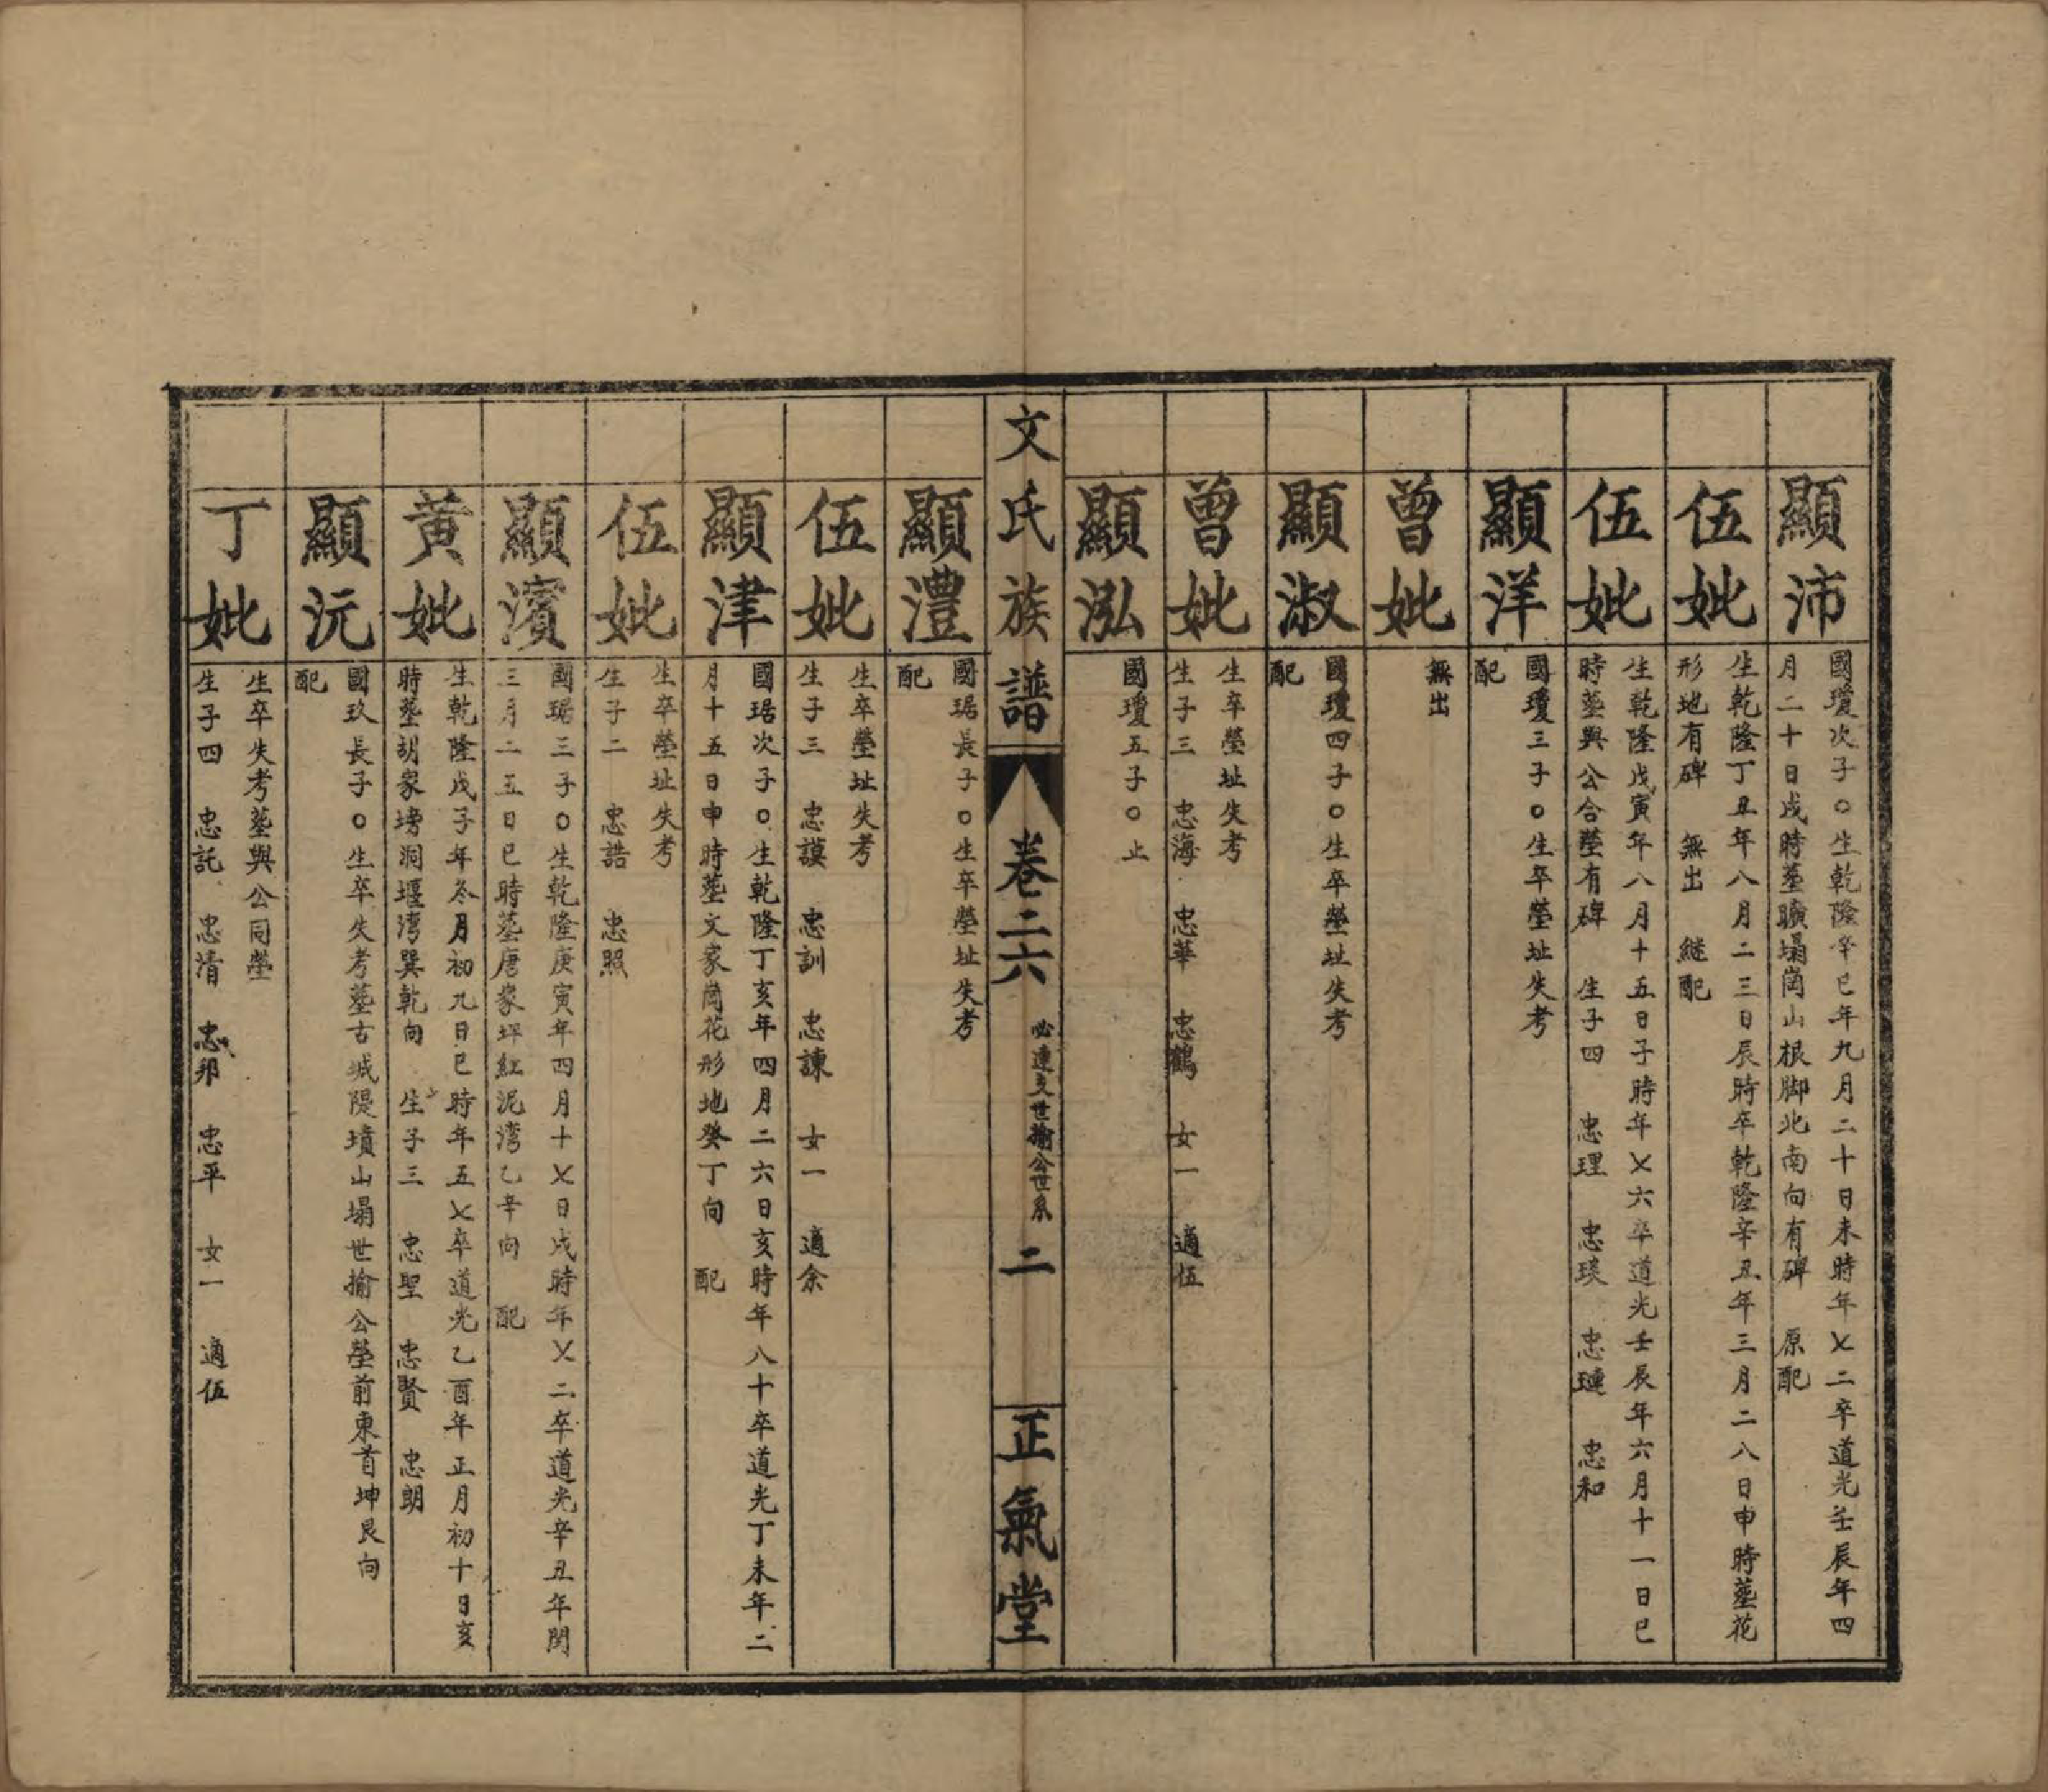 顯沛
國瓊次子○生乾隆辛巳年九月二十日未時年乂二卒道光壬辰年四
月二十日戌時塟曠塌崗山根脚北南向有碑　原配
伍妣
生乾隆丁丑年八月二三日辰時卒乾隆辛丑年三月二八日申時塟花
形地有碑　無出　継配
伍妣
生乾隆戊寅年八月十五日子時年乂六卒道光壬辰年六月十一日巳
時塟與公合塋有碑　生子四　忠理　忠琰　忠璉　忠和
顯洋
國瓊三子○生卒塋址失考
配
曾妣
無出
顯淑
國瓊四子○生卒塋址失考
配
曾妣
生卒塋址失考
生子三　忠海　忠華　忠鶴　女一　適伍
顯泓
國瓊五子○止
文氏族譜
卷二六
必連支世揄公世系
二
正氣堂
顯澧
國琚長子○生卒塋址失考
配
伍妣
生卒塋址失考
生子三　忠謨　忠訓　忠諫　女一　適余
顯津
國琚次子○生乾隆丁亥年四月二六日亥時年八十卒道光丁未年二
月十五日申時塟文家崗花形地癸丁向　配
伍妣
生卒塋址失考
生子二　忠誥　忠照
顯濱
國琚三子○生乾隆庚寅年四月十乂日戌時年乂二卒道光辛丑年閏
三月二五日巳時塟唐家坪紅泥湾乙辛向　配
黄妣
生乾隆戊子年冬月初九日巳時年五乂卒道光乙酉年正月初十日亥
時塟胡家塝洞堰湾巽乾向　生子三　忠聖　忠賢　忠朗
顯沅
國玖長子○生卒失考塟古城隄墳山塌世揄公塋前東首坤艮向
配
丁妣
生卒失考塟與公同塋
生子四　忠託　忠清　忠邦　忠平　女一　適伍